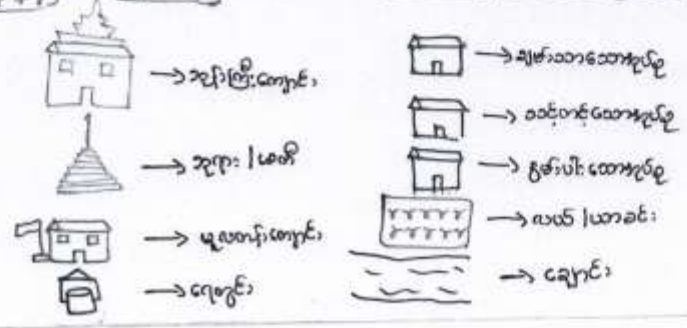 ဘုန်းကြီးကျောင်း
ဘုရား | စေတီ
မူလတန်းကျောင်း
ရေတွင်း
ချမ်းသာသောအုပ်စု
သင့်တင့်သောအုပ်စု
နွမ်းပါးသောအုပ်စု
လယ် | ယာခင်း
ချောင်း